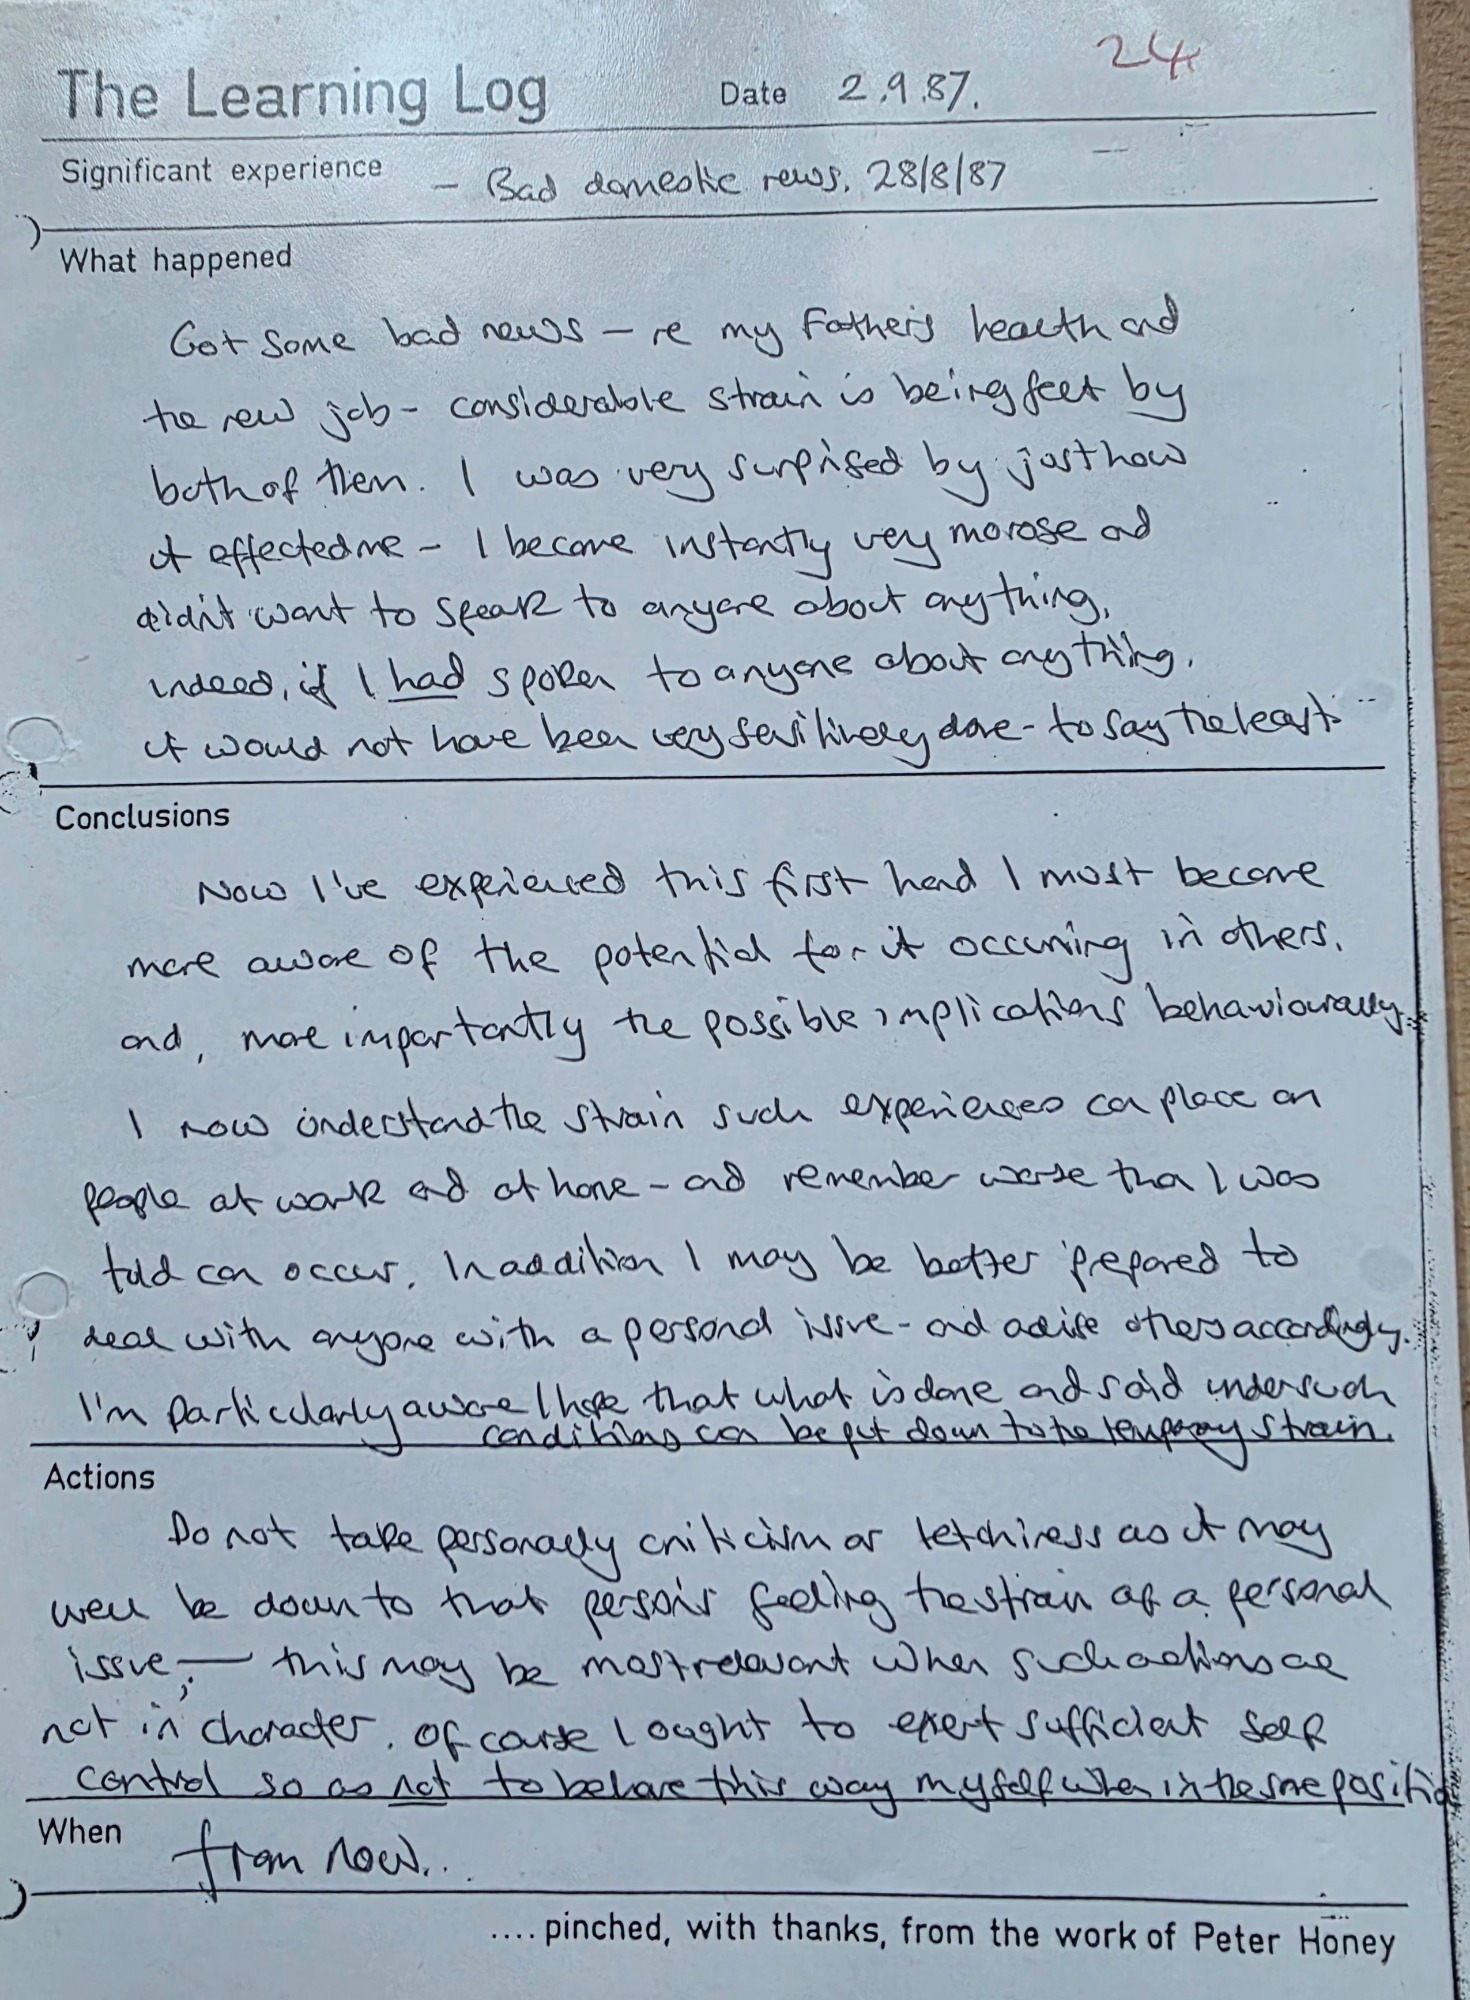 24
The Learning Log Date 2.9.87.
Significant experience - Bad domestic news. 28/8/87
What happened
Got some bad news - re my Father's health and
the new job - considerable strain is being felt by
both of them. I was very surprised by just how
it effected me - I became instantly very morose and
didn't want to speak to anyone about anything,
indeed, if I had spoken to anyone about anything,
it would not have been very sensitively done - to say the least.
Conclusions
Now I've experienced this first hand I must become
more aware of the potential for it occurring in others.
and, more importantly the possible implications behaviourally.
I now understand the strain such experiences can place on
people at work and at home - and remember worse than I was
told can occur. In addition I may be better prepared to
deal with anyone with a personal issue - and advise others accordingly.
I'm particularly aware I hope that what is done and said under such
conditions can be put down to the temporary strain.
Actions
Do not take personally criticism or tetchiness as it may
well be down to that person's feeling the strain of a personal
issue; - this may be most relevant when such actions are
not in character. Of course I ought to exert sufficient self
control so as not to behave this way myself when in the same position
When from now...
.... pinched, with thanks, from the work of Peter Honey